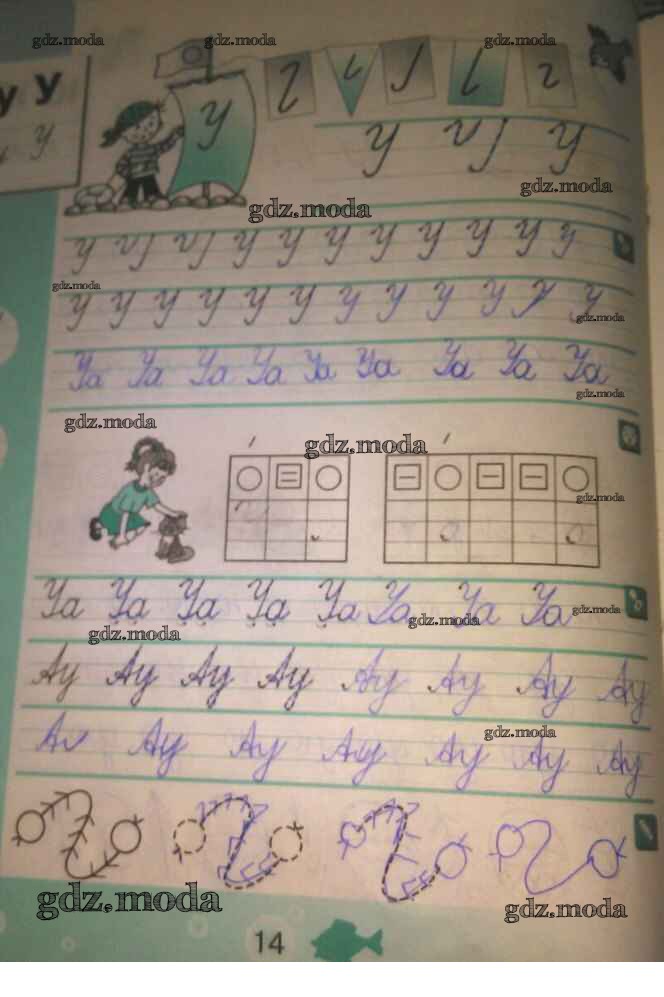 gdz.moda gdz.moda gdz.moda
у У
У
У
У У У
gdz.moda
gdz.moda
У У У У У У У У У У У
gdz.moda
У У У У У У У У У У У У
gdz.moda
Уа Уа Уа Уа Уа Уа Уа Уа Уа
gdz.moda
gdz.moda
gdz.moda
gdz.moda
Уа Уа Уа Уа Уа Уа Уа Уа
gdz.moda
gdz.moda
gdz.moda
Ау Ау Ау Ау Ау Ау Ау Ау
gdz.moda
Ау Ау Ау Ау Ау Ау Ау
gdz.moda
gdz.moda
14